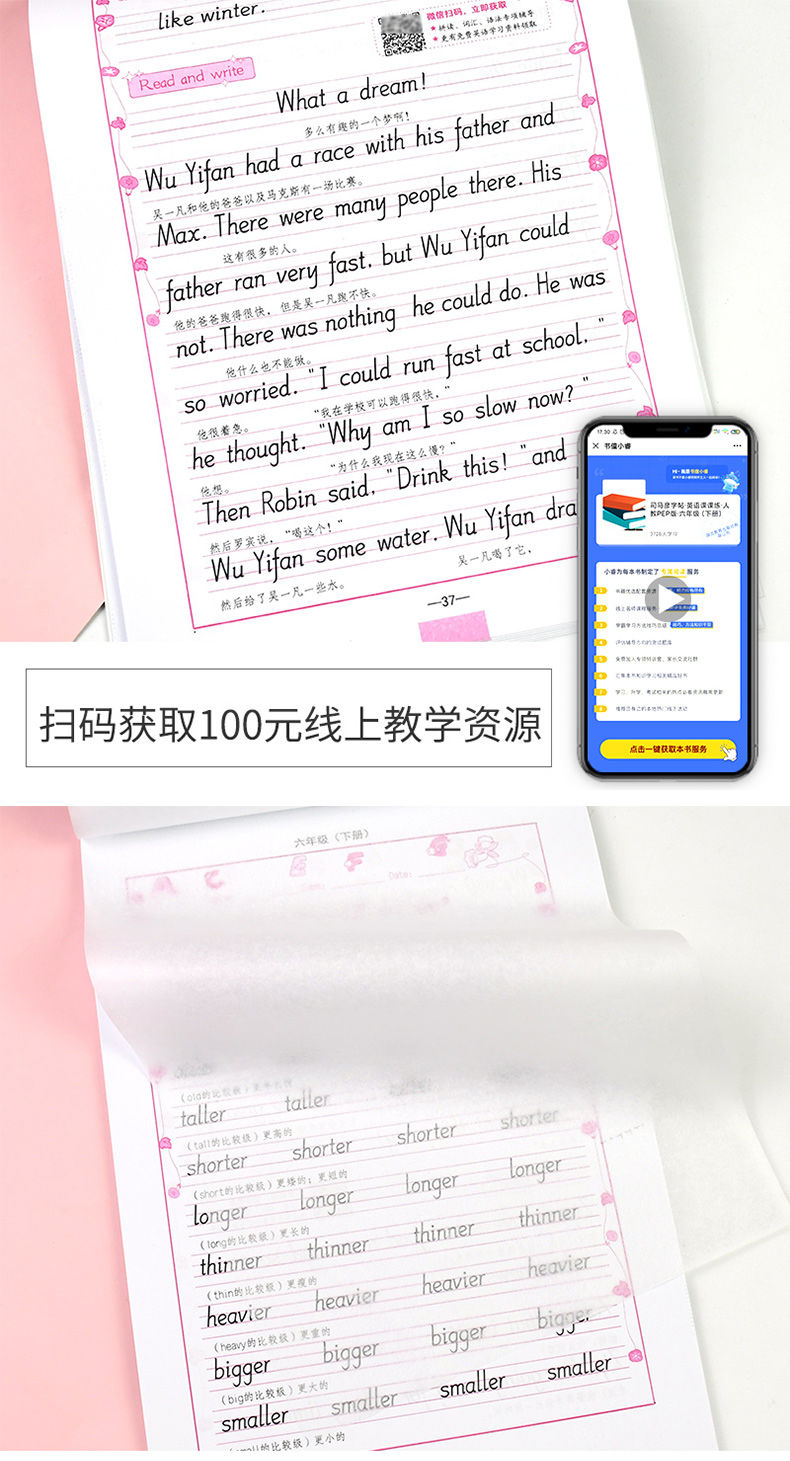 like winter.
微信扫码，立即获取
★ 拼读、词汇、语法专项辅导
★ 更有免费英语学习资料领取
Read and write
What a dream!
多么有趣的一个梦啊!
Wu Yifan had a race with his father and
吴一凡和他的爸爸以及马克斯有一场比赛。
Max. There were many people there. His
这有很多的人。
father ran very fast, but Wu Yifan could
他的爸爸跑得很快，但是吴一凡跑不快。
not. There was nothing he could do. He was
他什么也不能做。
so worried. "I could run fast at school, "
他很着急。 “我在学校可以跑得很快，”
he thought. "Why am I so slow now? "
他想。 “为什么我现在这么慢？”
Then Robin said, "Drink this! "and
然后罗宾说，“喝这个！”
Wu Yifan some water. Wu Yifan dra
然后给了吴一凡一些水。 吴一凡喝了它，
—37—
17:30
× 书僮小睿 •••
司马彦字帖·英语课课练·人
教PEP版·六年级（下册）
小睿为每本书制定了 服务
1
2
3
4
5
6
7
8
点击一键获取本书服务
扫码获取100元线上教学资源
六年级（下册）
A C E F
Date:
(old的比较级)
taller taller
(tall的比较级) 更高的
shorter shorter shorter shorter
(short的比较级) 更矮的; 更短的
longer longer longer longer
(long的比较级) 更长的
thinner thinner thinner thinner
(thin的比较级) 更瘦的
heavier heavier heavier heavier
(heavy的比较级) 更重的
bigger bigger bigger bigger
(big的比较级) 更大的
smaller smaller smaller smaller
(small的比较级) 更小的